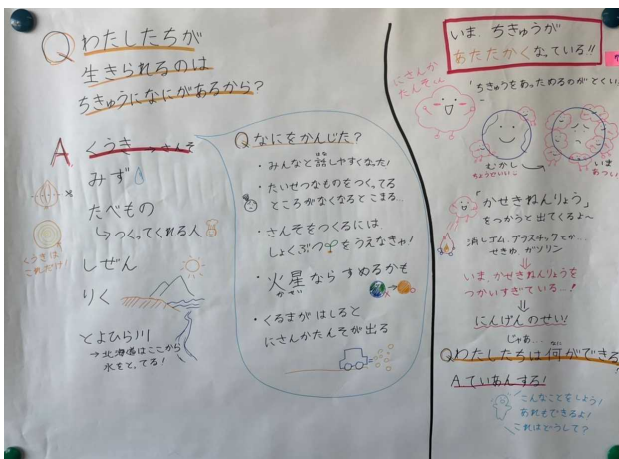 Q わたしたちが
生きられるのは
ちきゅうになにがあるから?
A くうき → さんそ
みず
たべもの
↳ つくってくれる人
しぜん
りく
とよひら川
→ 北海道はここから
水をとってる!
くうきは
これだけ!
Q なにをかんじた?
・みんなと話しやすくなった!
・たいせつなものをつくってる
ところがなくなるとこまる...
・さんそをつくるには
しょくぶつをうえなきゃ!
・火星ならすめるかも
かせい
・くるまがはしると
にさんかたんそが出る
いま、ちきゅうが
あたたかくなっている!!
にさんか
たんそくん
「ちきゅうをあっためるのがとくい
むかし
ちょうどいい
いま
あつい
「かせきねんりょう」
をつかうと出てくるよ〜
消しゴム、プラスチックとか...
せきゆ ガソリン
いま かせきねんりょうを
つかいすぎている...!
にんげんのせい!
じゃあ...
Q わたしたちは何ができる
A ていあんする!
こんなことをしよう!
あれもできるよ!
これはどうして?